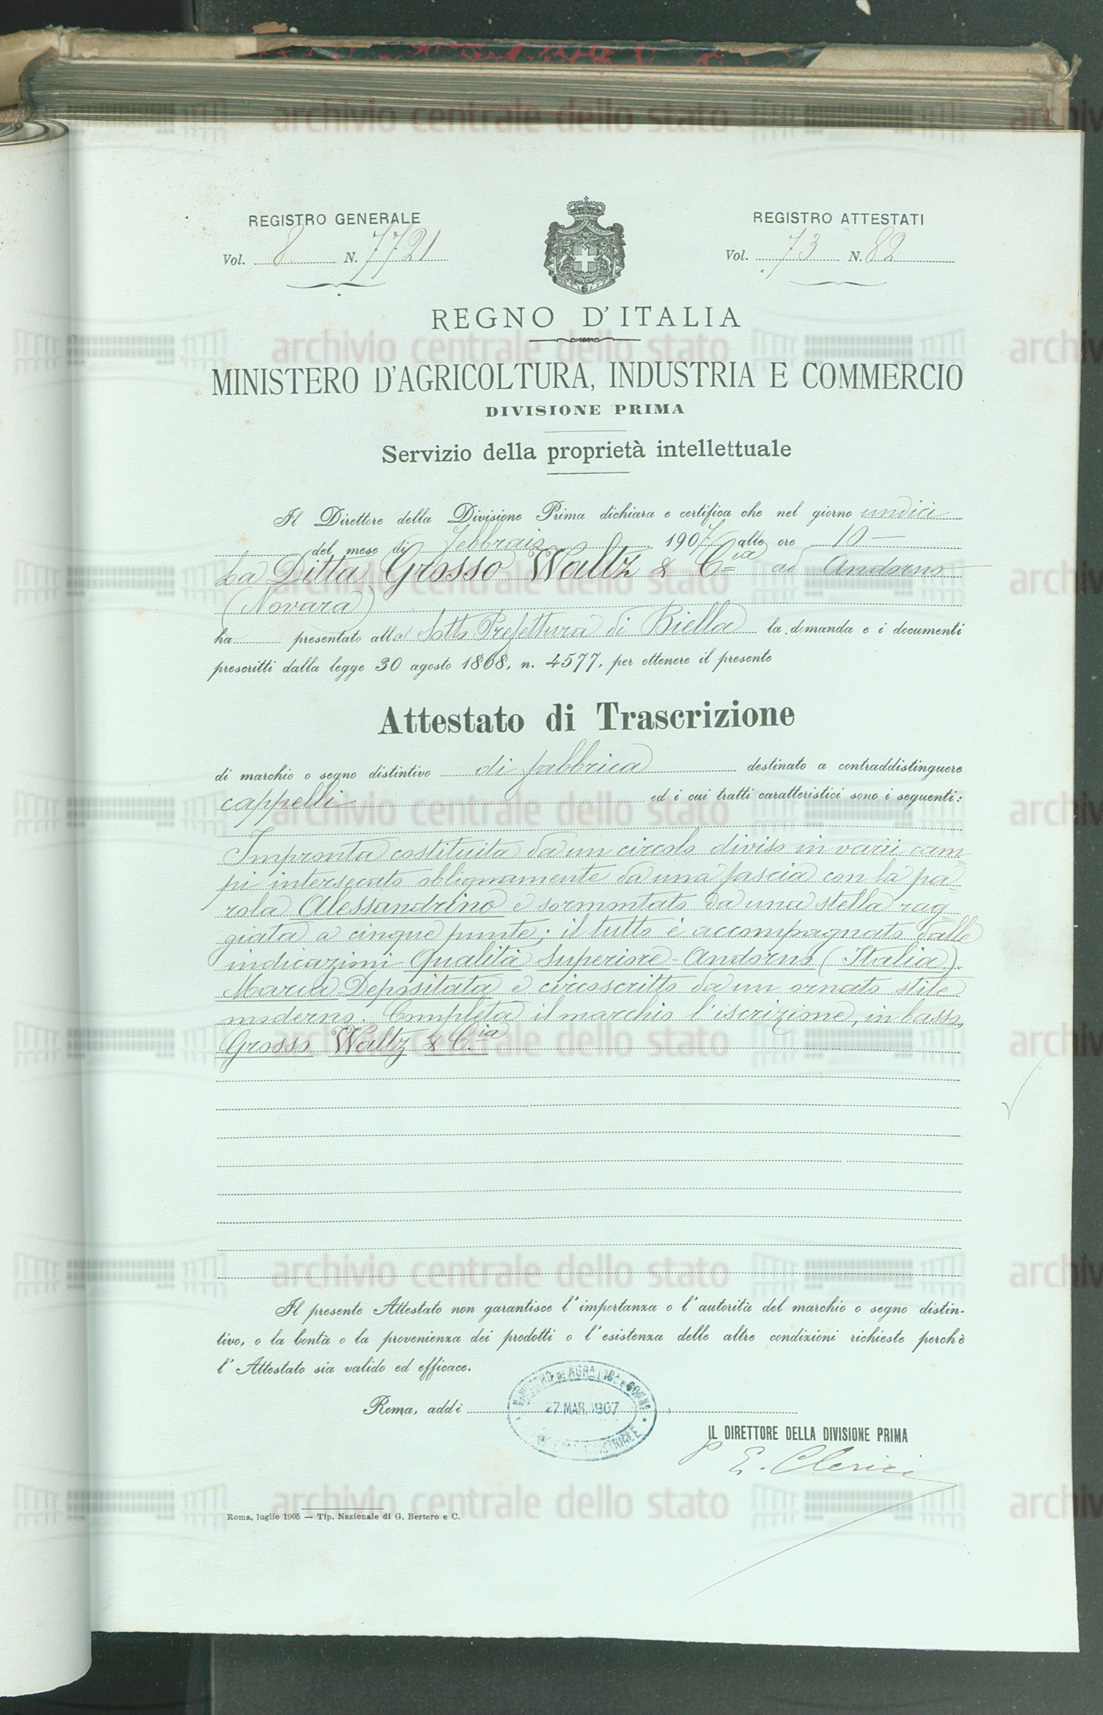 REGISTRO GENERALE
Vol. 8 N. 7721
REGISTRO ATTESTATI
Vol. 73 N. 82
REGNO D'ITALIA
MINISTERO D'AGRICOLTURA, INDUSTRIA E COMMERCIO
DIVISIONE PRIMA
Servizio della proprietà intellettuale
Il Direttore della Divisione Prima dichiara e certifica che nel giorno undici
del mese di Febbraio 1907 alle ore 10 —
La Ditta Grosso Waltz & Cia ad Andorno
(Novara)
ha presentato alla Sotto Prefettura di Biella la domanda e i documenti
prescritti dalla legge 30 agosto 1868, n. 4577, per ottenere il presente
Attestato di Trascrizione
di marchio o segno distintivo di fabbrica destinato a contraddistinguere
cappelli ed i cui tratti caratteristici sono i seguenti:
Impronta costituita da un circolo diviso in varii cam=
pi intersecato obliquamente da una fascia con la pa=
rola Alessandrino e sormontato da una stella rag=
giata a cinque punte; il tutto è accompagnato dalle
indicazioni Qualità Superiore - Andorno (Italia)-
Marca Depositata e circoscritto da un ornato stile
moderno. Completa il marchio l'iscrizione, in basso,
Grosso Waltz & Cia
Il presente Attestato non garantisce l'importanza o l'autorità del marchio o segno distin-
tivo, o la bontà o la provenienza dei prodotti o l'esistenza delle altre condizioni richieste perchè
l'Attestato sia valido ed efficace.
Roma, addì
27 MAR. 1907
IL DIRETTORE DELLA DIVISIONE PRIMA
p E. Clerici
Roma, luglio 1905 — Tip. Nazionale di G. Bertero e C.
archivio centrale dello stato